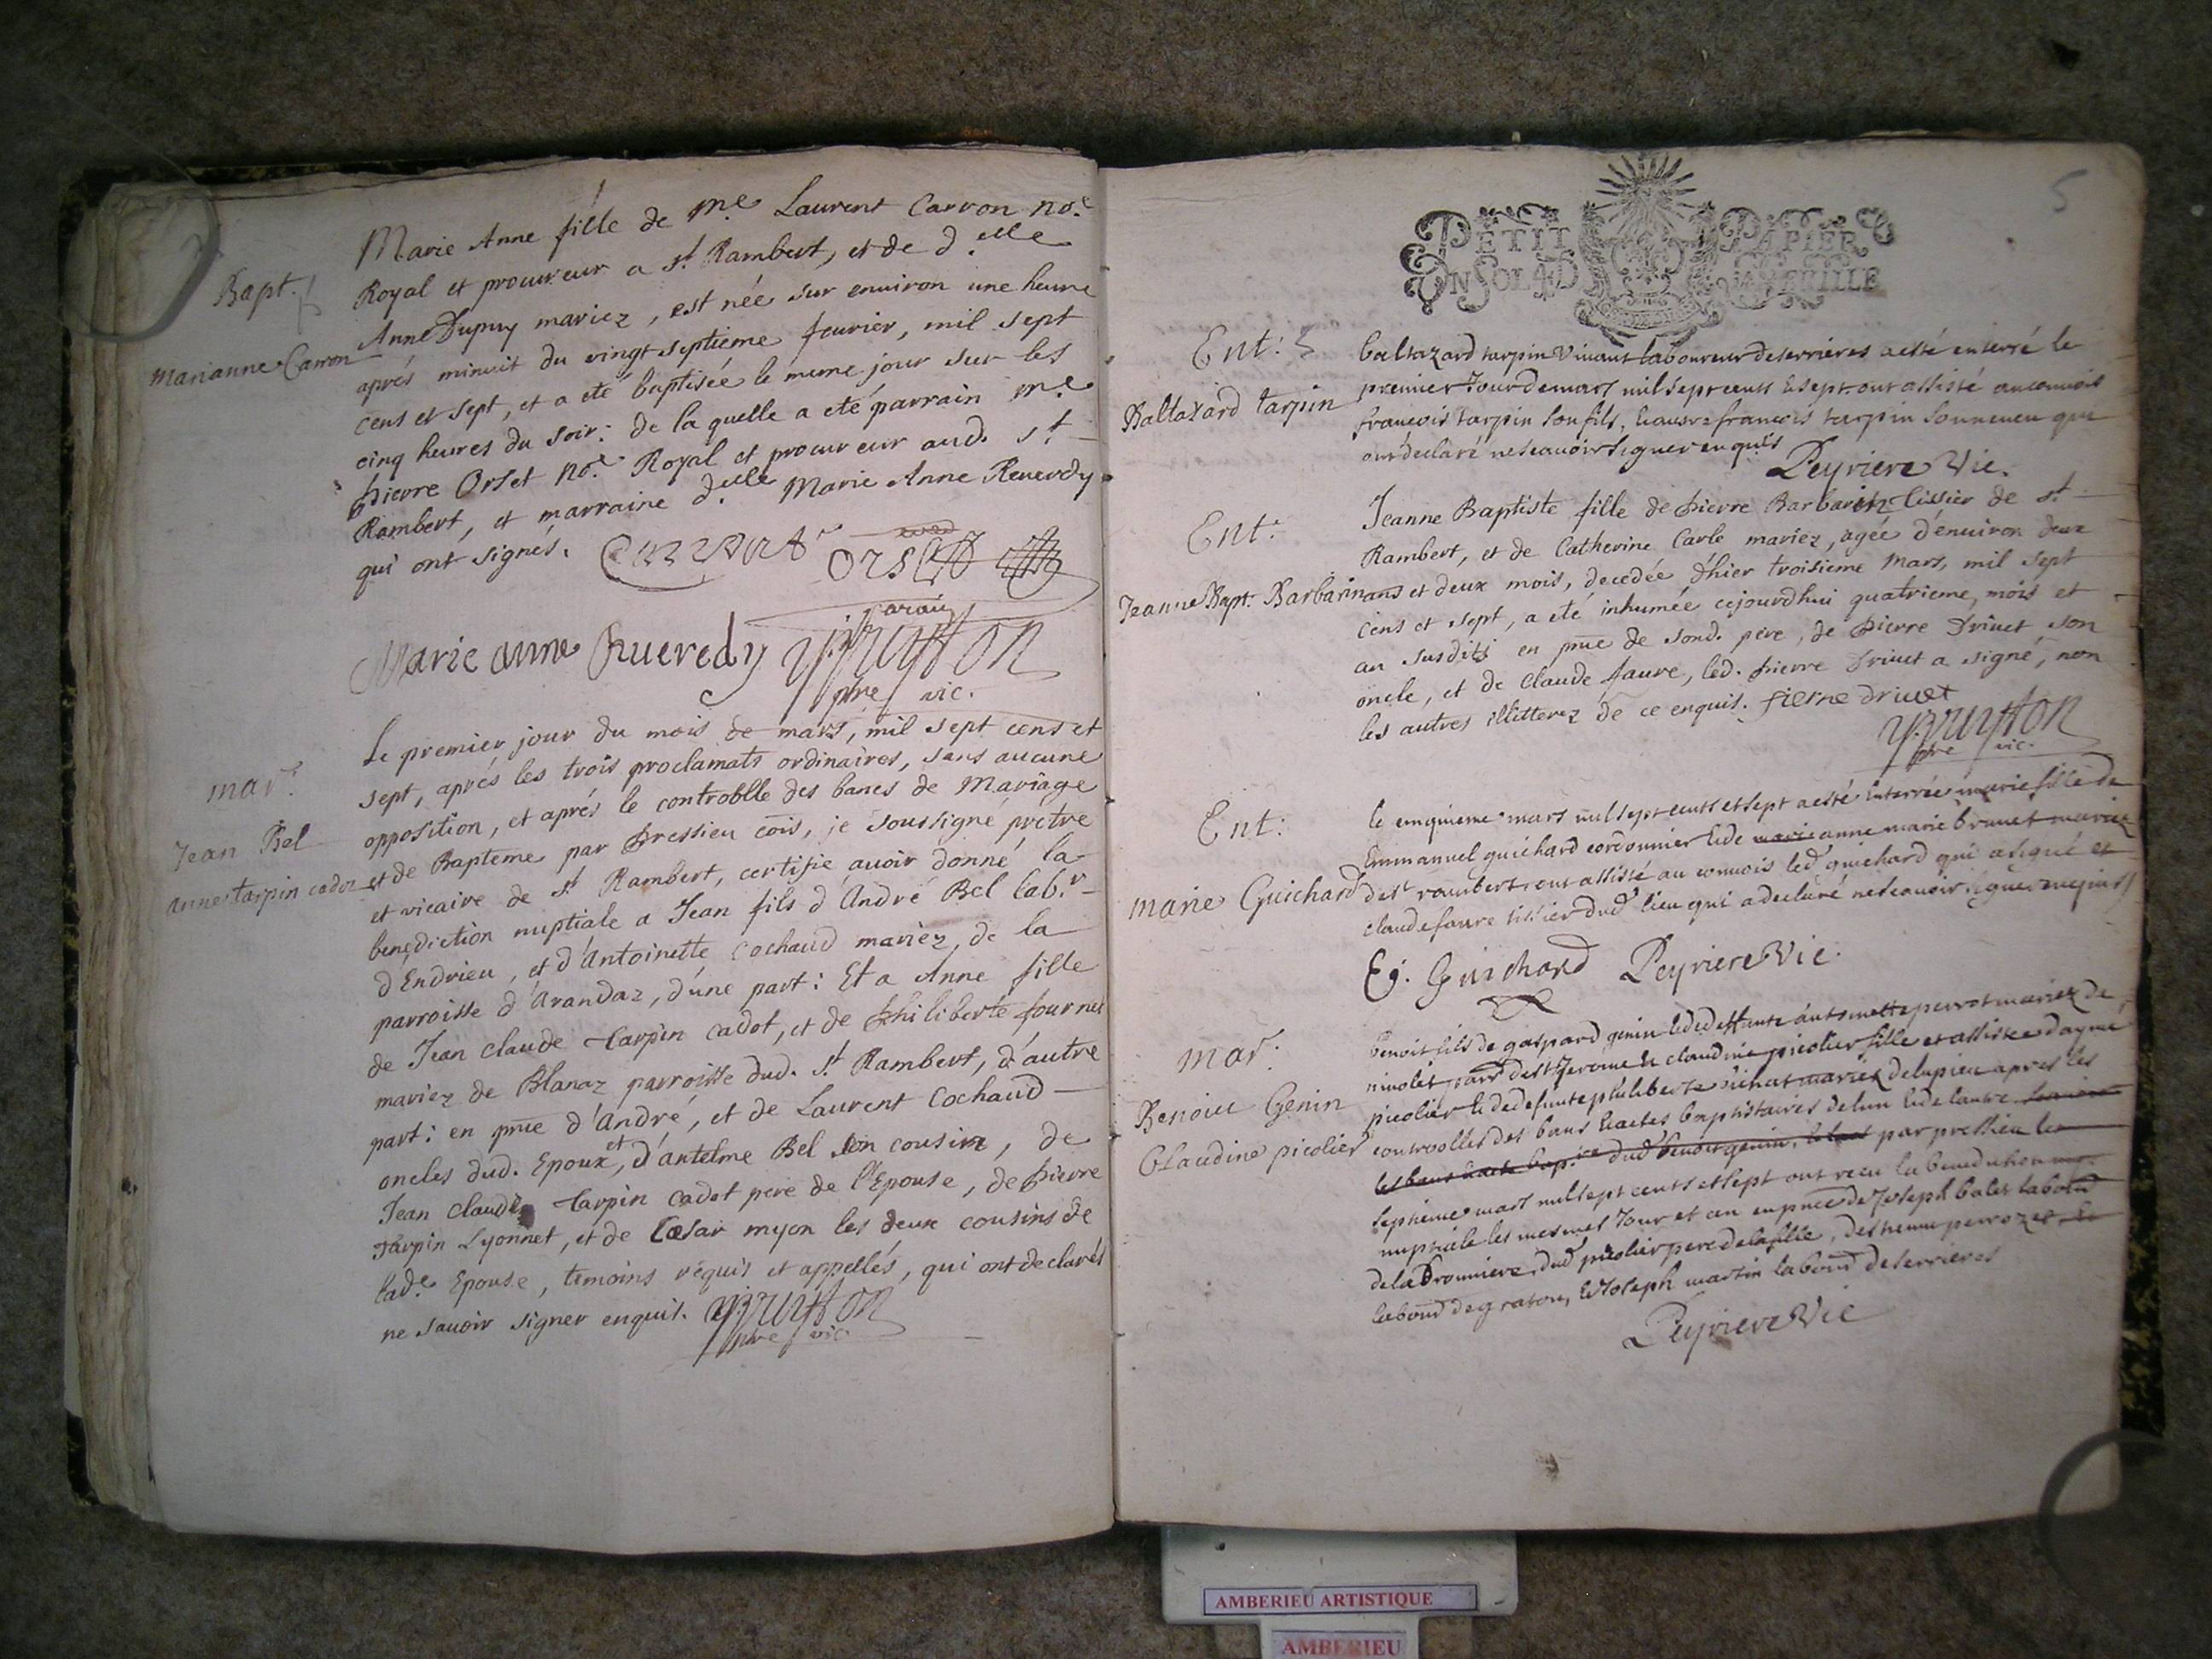 Bapt.
Marianne Carron
Marie Anne fille de Me Laurent Carron noe
Royal et procureur a st Rambert, et de delle
Anne Dupuy mariez, est née sur environ une heure
aprés minuit du vingt septième feurier, mil sept
cens et sept, et a eté baptisée le meme jour sur les
cinq heures du soir: de la quelle a eté parrain me
pierre Orset noe Royal et procureur aud. st
Rambert, et marraine delle Marie Anne Reuerdy
qui ont signés.
Orset
parain
Marie anne Rueredy
ptre vic.
mar.
Jean Bel
anne tarpin cadoz
Le premier jour du mois de mars, mil sept cens et
sept, aprés les trois proclamats ordinaires, sans aucune
opposition, et aprés le controlle des bancs de Mariage
et de Bapteme par pressieu cois, je soussigné prêtre
et vicaire de st Rambert, certifie auoir donné la
benediction nuptiale a Jean fils d'André Bel lab.r
d'Endrieu, et d'Antoinette Cochaud mariez, de la
parroisse d'Arandaz, d'une part: Et a Anne fille
de Jean Claude Tarpin cadot, et de philiberte fournet
mariez de Blanaz parroisse dud. st Rambert, d'autre
part: en pnce d'André, et de Laurent Cochaud
oncles dud. Epoux, et d'antelme Bel son cousin, de
Jean Claude Tarpin cadot pere de l'Epouse, de pierre
Tarpin Lyonnet, et de Cæsar myon les deux cousins de
lad.e Epouse, temoins réquis et appellés, qui ont declarés
ne sauoir signer enquis.
ptre vic.
5
PETIT PAPIER
UN SOL 4D LA FEUILLE
Ent: 5
Baltazard tarpin
baltazard tarpin vivant laboureur de serrieres a esté enterré le
premier Jour de mars mil sept cents et sept. ont assisté au convois
francois tarpin son fils, et autre francois tarpin son neueu qui
ont déclaré ne scauoir signer enquis
Peyriere Vic.
Ent:
Jeanne Bapt. Barbarin
Jeanne Baptiste fille de pierre Barbarin tissier de st
Rambert, et de Catherine Carle mariez, agée d'enuiron deux
ans et deux mois, decedée d'hier troisieme Mars, mil sept
cens et sept, a eté inhumée cejourdhui quatrieme, mois et
an susdits en pnce de sond. pere, de pierre Driuet son
oncle, et de Claude faure, led. pierre Driuet a signé, non
les autres illitterez de ce enquis. pierre driuet
ptre vic.
Ent:
Marie Guichard
le cinquieme mars mil sept cents et sept a esté enterrée marie fille de
Emmanuel guichard cordonnier et de marie anne marie brunet mariez
de st rambert, ont assisté au conuois led guichard qui a signé et
claude faure tissier dud lieu qui a declaré ne scauoir signer enquis
E. Guichard Peyriere Vic.
mar:
Benoiet Genin
Claudine picolier
benoit fils de gaspard genin et de deffunte antoinette perrot mariez de
niuolet parr de st Jerome et claudine picolier fille et assistée d'aymé
picolier et de defunte philiberte mariez delupieu apres les
controlles des bans et actes baptistaires de l'un et de l'autre
les bans et acte bap.re dud benoit genin, par pressieu le
septieme mars mil sept cents et sept ont receu la benediction
nuptiale les mesmes Jour et an en pnce de Joseph balet labour
dela dud picolier pere de la fille, d'estienne perrozet
labour de graton, et Joseph martin labour de serrieres
Peyriere Vic
AMBERIEU ARTISTIQUE
AMBERIEU